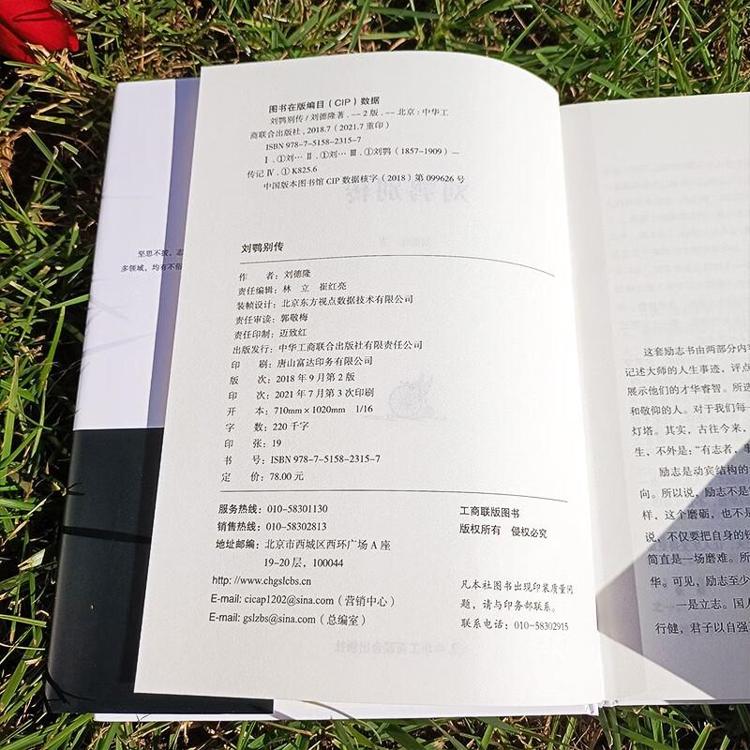 图书在版编目(CIP)数据
刘鹗别传/刘德隆著.--2版.--北京:中华工
商联合出版社,2018.7(2021.7重印)
ISBN 978-7-5158-2315-7
Ⅰ.①刘… Ⅱ.①刘… Ⅲ.①刘鹗(1857-1909)—
传记 Ⅳ.①K825.6
中国版本图书馆CIP数据核字(2018)第099626号
刘鹗别传
作 者:刘德隆
责任编辑:林 立 崔红亮
装帧设计:北京东方视点数据技术有限公司
责任审读:郭敬梅
责任印制:迈致红
出版发行:中华工商联合出版社有限责任公司
印 刷:唐山富达印务有限公司
版 次:2018年9月第2版
印 次:2021年7月第3次印刷
开 本:710mm×1020mm 1/16
字 数:220千字
印 张:19
书 号:ISBN 978-7-5158-2315-7
定 价:78.00元
服务热线:010-58301130
销售热线:010-58302813
地址邮编:北京市西城区西环广场A座
19-20层,100044
http://www.chgslcbs.cn
E-mail: cicap1202@sina.com(营销中心)
E-mail: gslzbs@sina.com(总编室)
工商联版图书
版权所有 侵权必究
凡本社图书出现印装质量问
题,请与印务部联系。
联系电话:010-58302915
坚思不拔,志
多领域,均有不俗
这套励志书由两部分内
记述大师的人生事迹,评点
展示他们的才华睿智。所选
和敬仰的人。对于我们每一
灯塔。其实,古往今来,
生,不外是:“有志者,事
励志是动宾结构的
向。所以说,励志不是
样,这个磨砺,也不是
说,不仅要把自身的锐
简直是一场磨难。所
华。可见,励志至少
一是立志。国人
行健,君子以自强